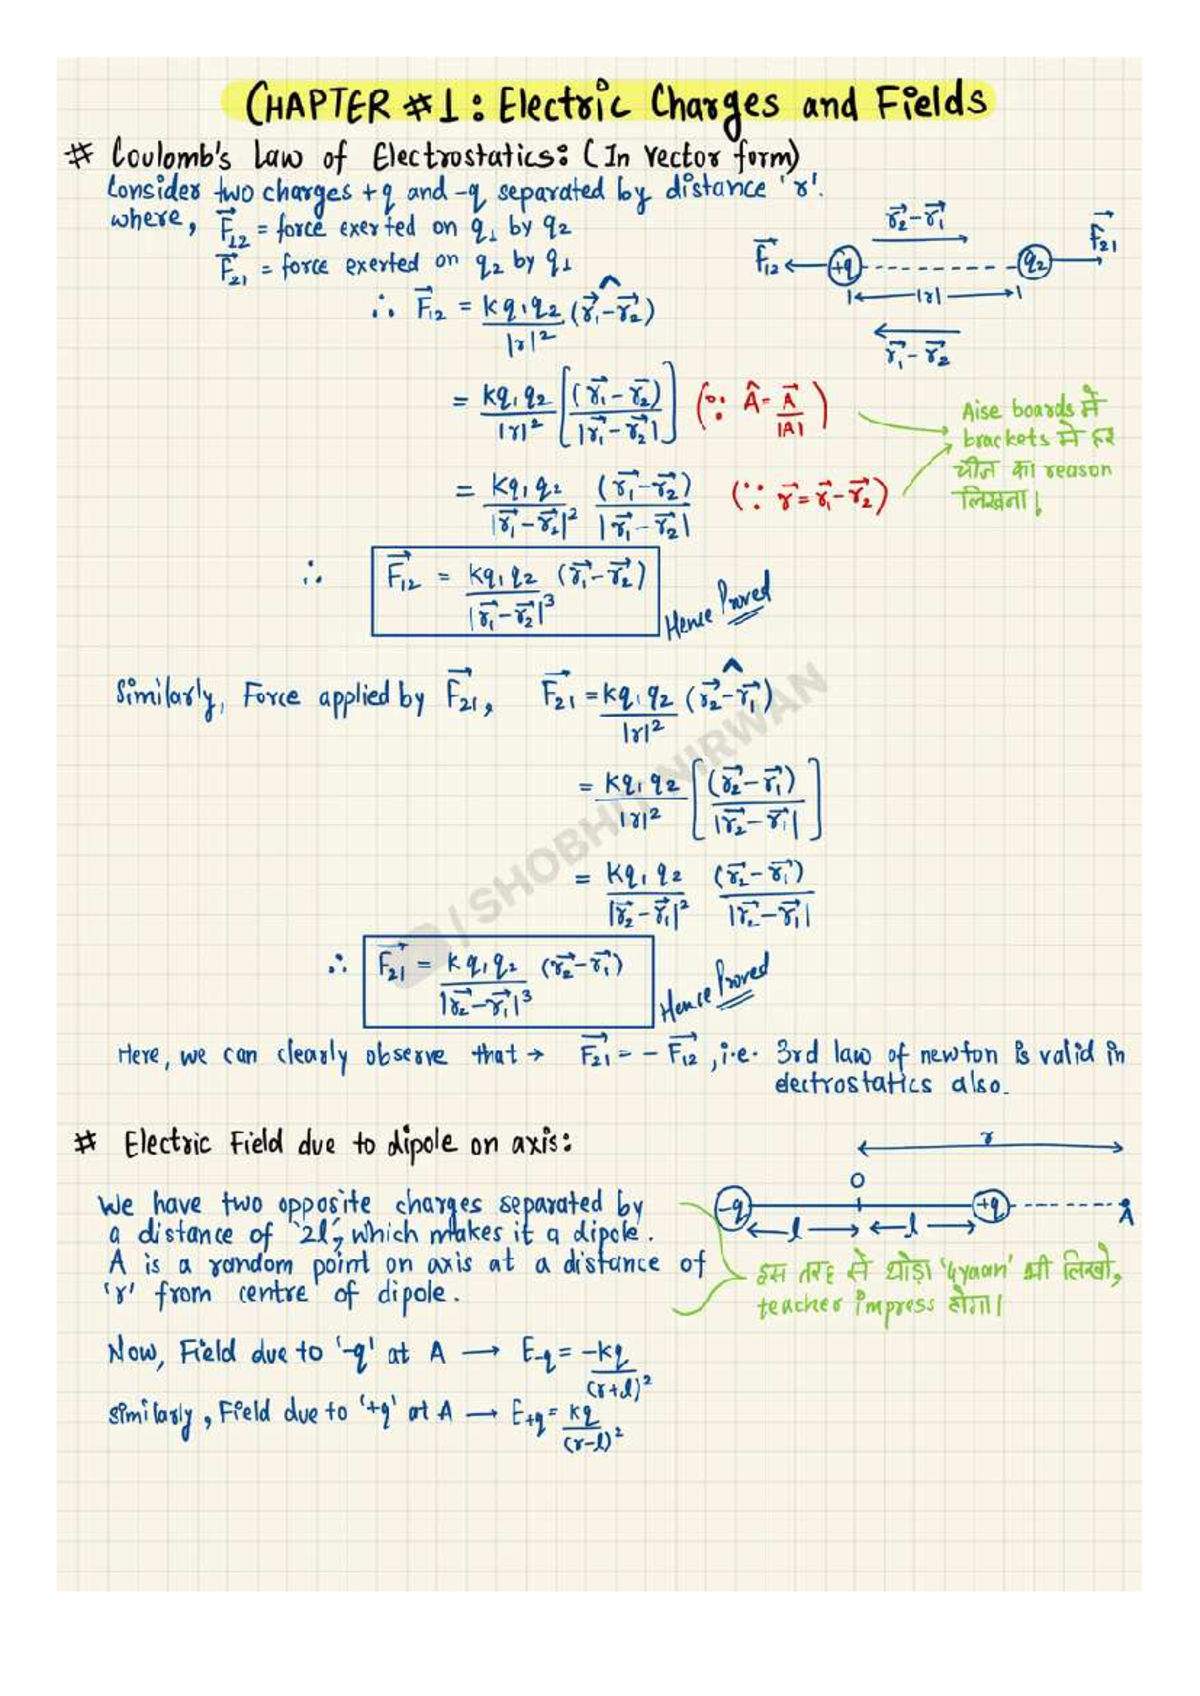 CHAPTER #1: Electric Charges and Fields
# Coulomb's Law of Electrostatics: (In vector form)
Consider two charges +q and -q separated by distance 'r'.
where, F⃗₁₂ = force exerted on q₁ by q₂
F⃗₂₁ = force exerted on q₂ by q₁
r⃗₂-r⃗₁
F⃗₁₂ +q q₂ F⃗₂₁
|r|
r⃗₁-r⃗₂
∴ F⃗₁₂ = kq₁q₂/|r|² (r⃗₁-r⃗₂)^
= kq₁q₂/|r|² [(r⃗₁-r⃗₂)/|r⃗₁-r⃗₂|] (∵ Â = A⃗/|A|)
= kq₁q₂/|r⃗₁-r⃗₂|² (r⃗₁-r⃗₂)/|r⃗₁-r⃗₂| (∵ r⃗=r⃗₁-r⃗₂)
Aise boards में
brackets में हर
चीज का reason
लिखना!
∴ F⃗₁₂ = kq₁q₂/|r⃗₁-r⃗₂|³ (r⃗₁-r⃗₂)
Hence Proved
Similarly, Force applied by F⃗₂₁, F⃗₂₁ = kq₁q₂/|r|² (r⃗₂-r⃗₁)^
= kq₁q₂/|r|² [(r⃗₂-r⃗₁)/|r⃗₂-r⃗₁|]
= kq₁q₂/|r⃗₂-r⃗₁|² (r⃗₂-r⃗₁)/|r⃗₂-r⃗₁|
∴ F⃗₂₁ = kq₁q₂/|r⃗₂-r⃗₁|³ (r⃗₂-r⃗₁)
Hence Proved
/SHOBHIT NIRWAN
Here, we can clearly observe that → F⃗₂₁ = - F⃗₁₂, i.e. 3rd law of newton is valid in
electrostatics also.
# Electric Field due to dipole on axis:
r
O
-q +q A
l l
We have two opposite charges separated by
a distance of '2l', which makes it a dipole.
A is a random point on axis at a distance of
'r' from centre of dipole.
इस तरह से थोड़ा 'gyaan' भी लिखो,
teacher impress होगा।
Now, Field due to '-q' at A → E-q = -kq/(r+l)²
Similarly, Field due to '+q' at A → E+q = kq/(r-l)²